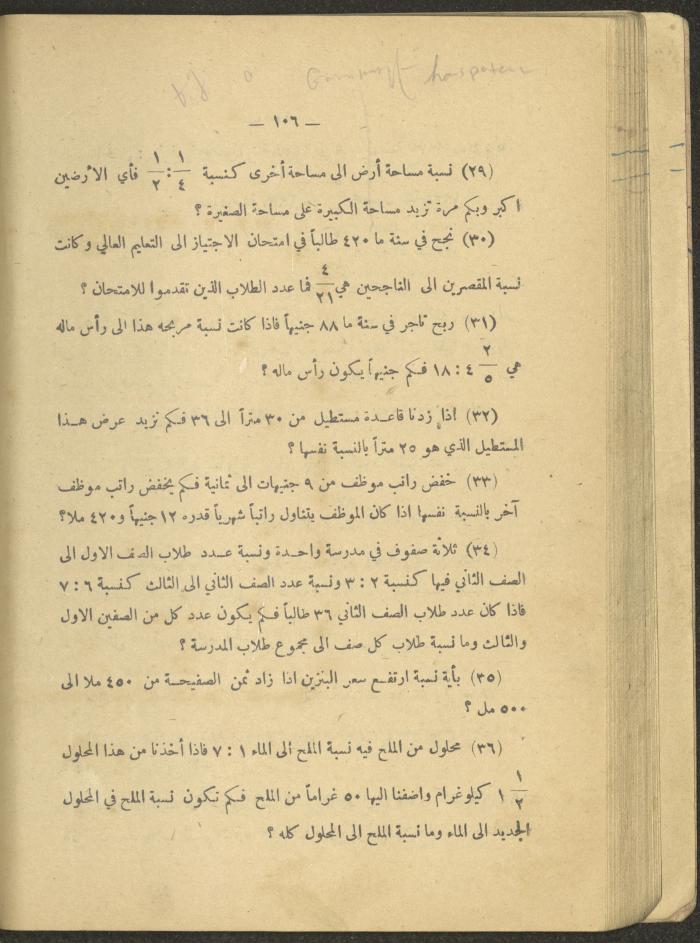 — ١٠٦ —
(٢٩) نسبة مساحة أرض الى مساحة أخرى كنسبة ١/٤ : ١/٢ فأي الأرضين
اكبر وبكم مرة تزيد مساحة الكبيرة على مساحة الصغيرة ؟
(٣٠) نجح في سنة ما ٤٢٠ طالباً في امتحان الاجتياز الى التعليم العالي وكانت
نسبة المقصرين الى الناجحين هي ٤/٢١ فما عدد الطلاب الذين تقدموا للامتحان ؟
(٣١) ربح تاجر في سنة ما ٨٨ جنيهاً فاذا كانت نسبة مربحه هذا الى رأس ماله
هي ٢/٥ ٤ : ١٨ فكم جنيهاً يكون رأس ماله ؟
(٣٢) اذا زدنا قاعدة مستطيل من ٣٠ متراً الى ٣٦ فكم نزيد عرض هذا
المستطيل الذي هو ٢٥ متراً بالنسبة نفسها ؟
(٣٣) خفض راتب موظف من ٩ جنيهات الى ثمانية فكم يخفض راتب موظف
آخر بالنسبة نفسها اذا كان الموظف يتناول راتباً شهرياً قدره ١٢ جنيهاً و ٤٢٠ ملا؟
(٣٤) ثلاثة صفوف في مدرسة واحدة ونسبة عدد طلاب الصف الاول الى
الصف الثاني فيها كنسبة ٢ : ٣ ونسبة عدد الصف الثاني الى الثالث كنسبة ٦ : ٧
فاذا كان عدد طلاب الصف الثاني ٣٦ طالباً فكم يكون عدد كل من الصفين الاول
والثالث وما نسبة طلاب كل صف الى مجموع طلاب المدرسة ؟
(٣٥) بأية نسبة ارتفع سعر البنزين اذا زاد ثمن الصفيحة من ٤٥٠ ملا الى
٥٠٠ مل ؟
(٣٦) محلول من الملح فيه نسبة الملح الى الماء ١ : ٧ فاذا أخذنا من هذا المحلول
١/٢ ١ كيلوغرام واضفنا اليها ٥٠ غراماً من الملح فكم تكون نسبة الملح في المحلول
الجديد الى الماء وما نسبة الملح الى المحلول كله ؟